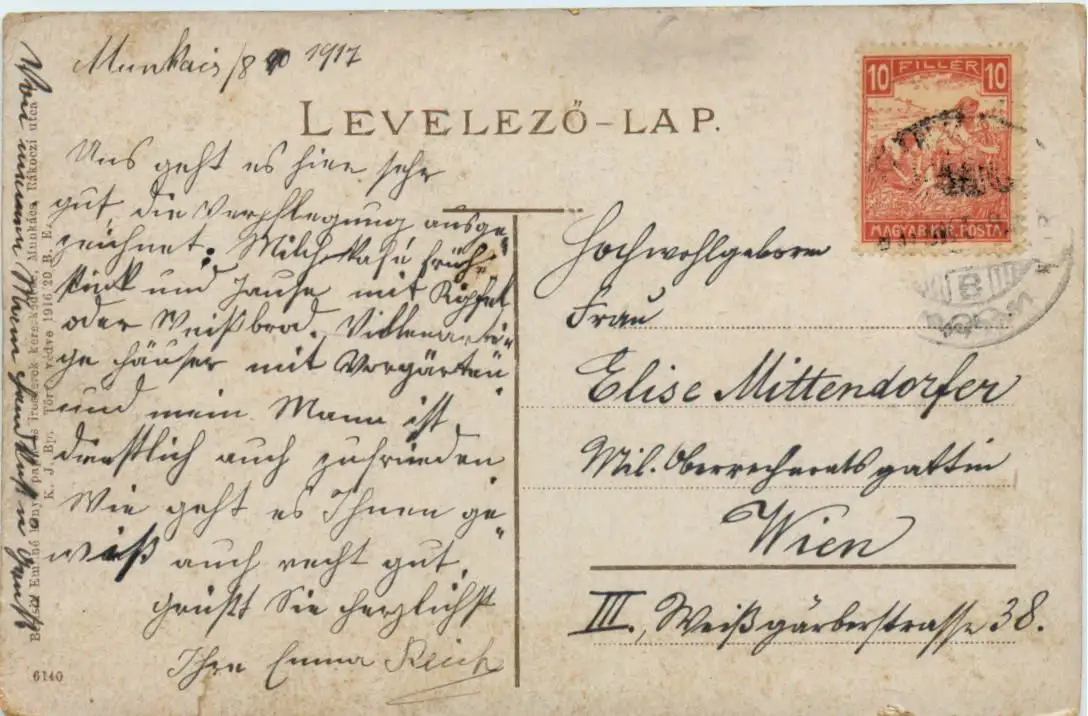 Munkács, 8 1917
LEVELEZŐ-LAP.
Uns geht es hier sehr
gut, die Verpflegung ausge-
zeichnet. Milchkafé Früh-
stück und Jause mit Kipfel
oder Weißbrod. Villenarti-
ge Häuser mit Vorgärten
und mein Mann ist
dienstlich auch zufrieden
Wie geht es Ihnen ge-
wiß auch recht gut,
grüßt Sie herzlichst
Ihre Emma Reich
Von meinem Mann Handkuß u. Gruß
Munkács, Rákóczi utca
K. J., Bp. Törv. védve 1916/20 B. E.
6140
10 FILLER 10
MAGYAR KIR. POSTA
Hochwohlgeboren
Frau
Elise Mittendorfer
Mil. Oberrechnratsgattin
Wien
III., Weißgärberstrasse 38.